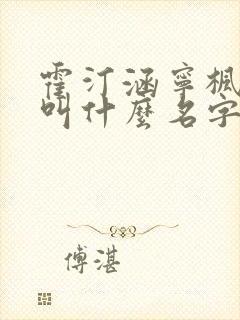 霍汀涵寧楓
叫什麼名字
傅湛